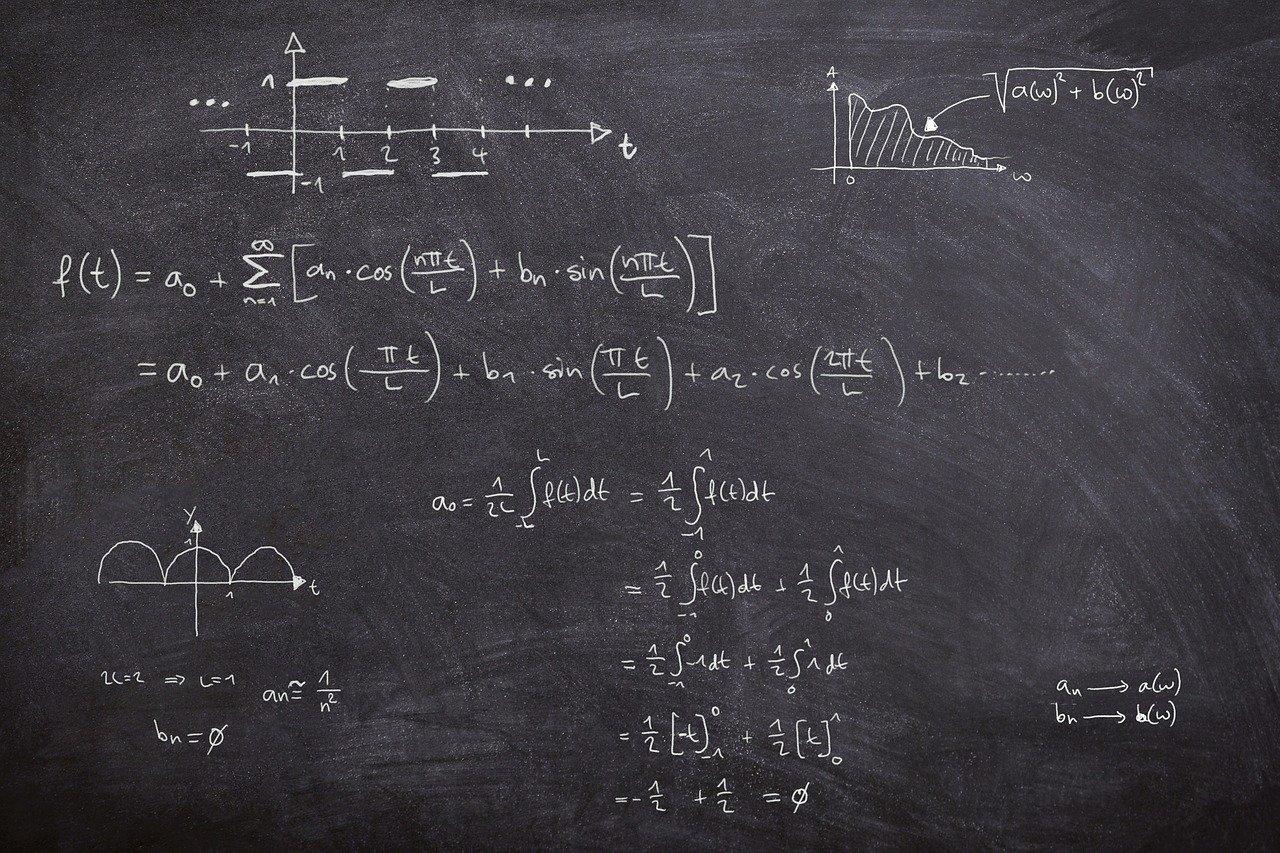 1 ...
...
-1 1 2 3 4 t
-1
A
√a(ω)² + b(ω)²
0 ω
f(t) = a₀ + ∑ₙ₌₁^∞ [aₙ · cos(nπt/L) + bₙ · sin(nπt/L)]
= a₀ + a₁ · cos(πt/L) + b₁ · sin(πt/L) + a₂ · cos(2πt/L) + b₂ ........
a₀ = 1/2L ∫₋L^L f(t)dt = 1/2 ∫₋₁^1 f(t)dt
= 1/2 ∫₋₁^0 f(t)dt + 1/2 ∫₀^1 f(t)dt
= 1/2 ∫₋₁^0 -1dt + 1/2 ∫₀^1 1dt
= 1/2 [-t]₋₁^0 + 1/2 [t]₀^1
= -1/2 + 1/2 = ∅
y
1
1 t
2L=2 ⇒ L=1 aₙ ≅ 1/n²
bₙ = ∅
aₙ → a(ω)
bₙ → b(ω)